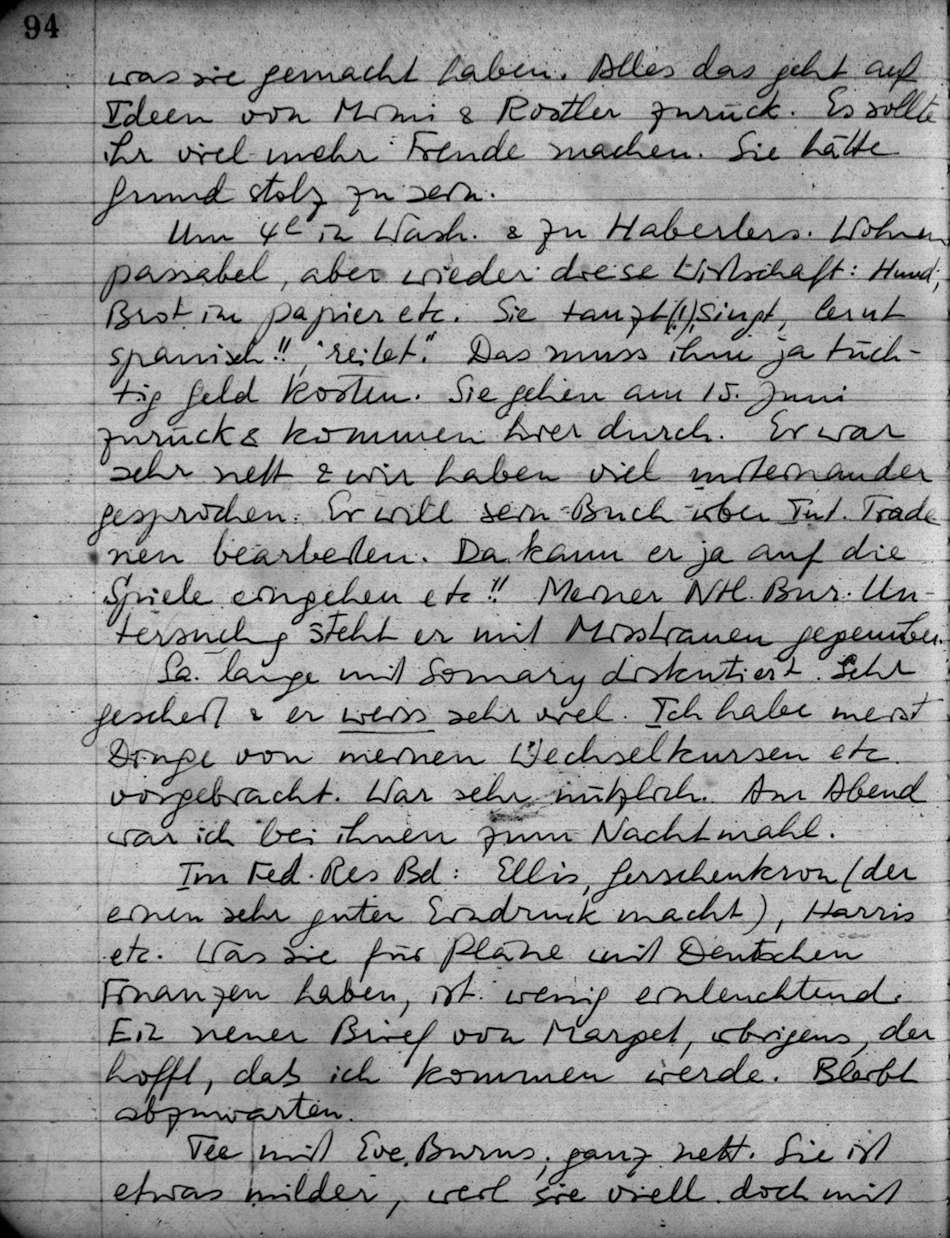 94
was sie gemacht haben. Alles das geht auf
Ideen von Mimi & Rostler zurück. Es sollte
ihr viel mehr Freude machen. Sie hätte
Grund stolz zu sein.
Um 4h in Wash. & zu Haberlers. Wohnen
passabel, aber wieder diese Wirtschaft: Hund,
Brot im Papier etc. Sie tanzt(!), singt, lernt
spanisch!!, "reitet". Das muss ihm ja tüch-
tig Geld kosten. Sie gehen am 15. Juni
zurück & kommen hier durch. Er war
sehr nett & wir haben viel miteinander
gesprochen. Er will sein Buch über Int. Trade
neu bearbeiten. Da kann er ja auf die
Spiele eingehen etc!! Meiner Ntl. Bur. Un-
tersuchg steht er mit Misstrauen gegenüber.
Sa. lange mit Somary diskutiert. Sehr
gescheit & er weiss sehr viel. Ich habe meist
Dinge von meinen Wechselkursen etc.
vorgebracht. War sehr nützlich. Am Abend
war ich bei ihnen zum Nachtmahl.
Im Fed. Res Bd: Ellis, Gerschenkron (der
einen sehr guten Eindruck macht), Harris
etc. Was sie für Pläne mit Deutschen
Finanzen haben, ist wenig einleuchtend.
Ein neuer Brief von Marget, übrigens, der
hofft, daß ich kommen werde. Bleibt
abzuwarten.
Tee mit Eve. Burns, ganz nett. Sie ist
etwas milder, weil sie viell. doch mit